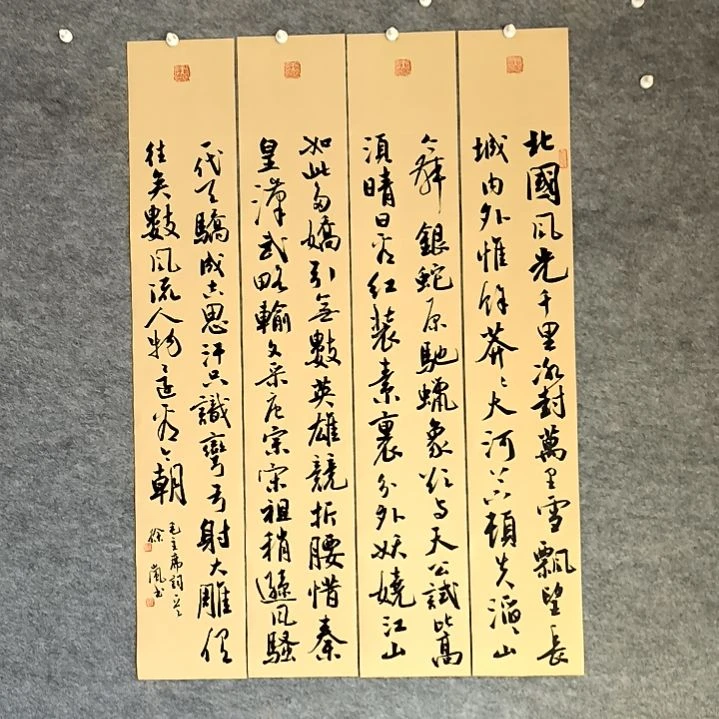 北國风光千里冰封萬里雪飄望長
城内外惟餘莽〻大河上下頓失滔〻山
舞銀蛇原馳蠟象欲与天公試比高
須晴日看红装素裹分外妖嬈江山
如此多嬌引無數英雄競折腰惜秦
皇漢武略輸文采唐宗宋祖稍遜风騷
一代天驕成吉思汗只識彎弓射大雕俱
往矣數风流人物還看今朝
毛主席詞
徐嵐书